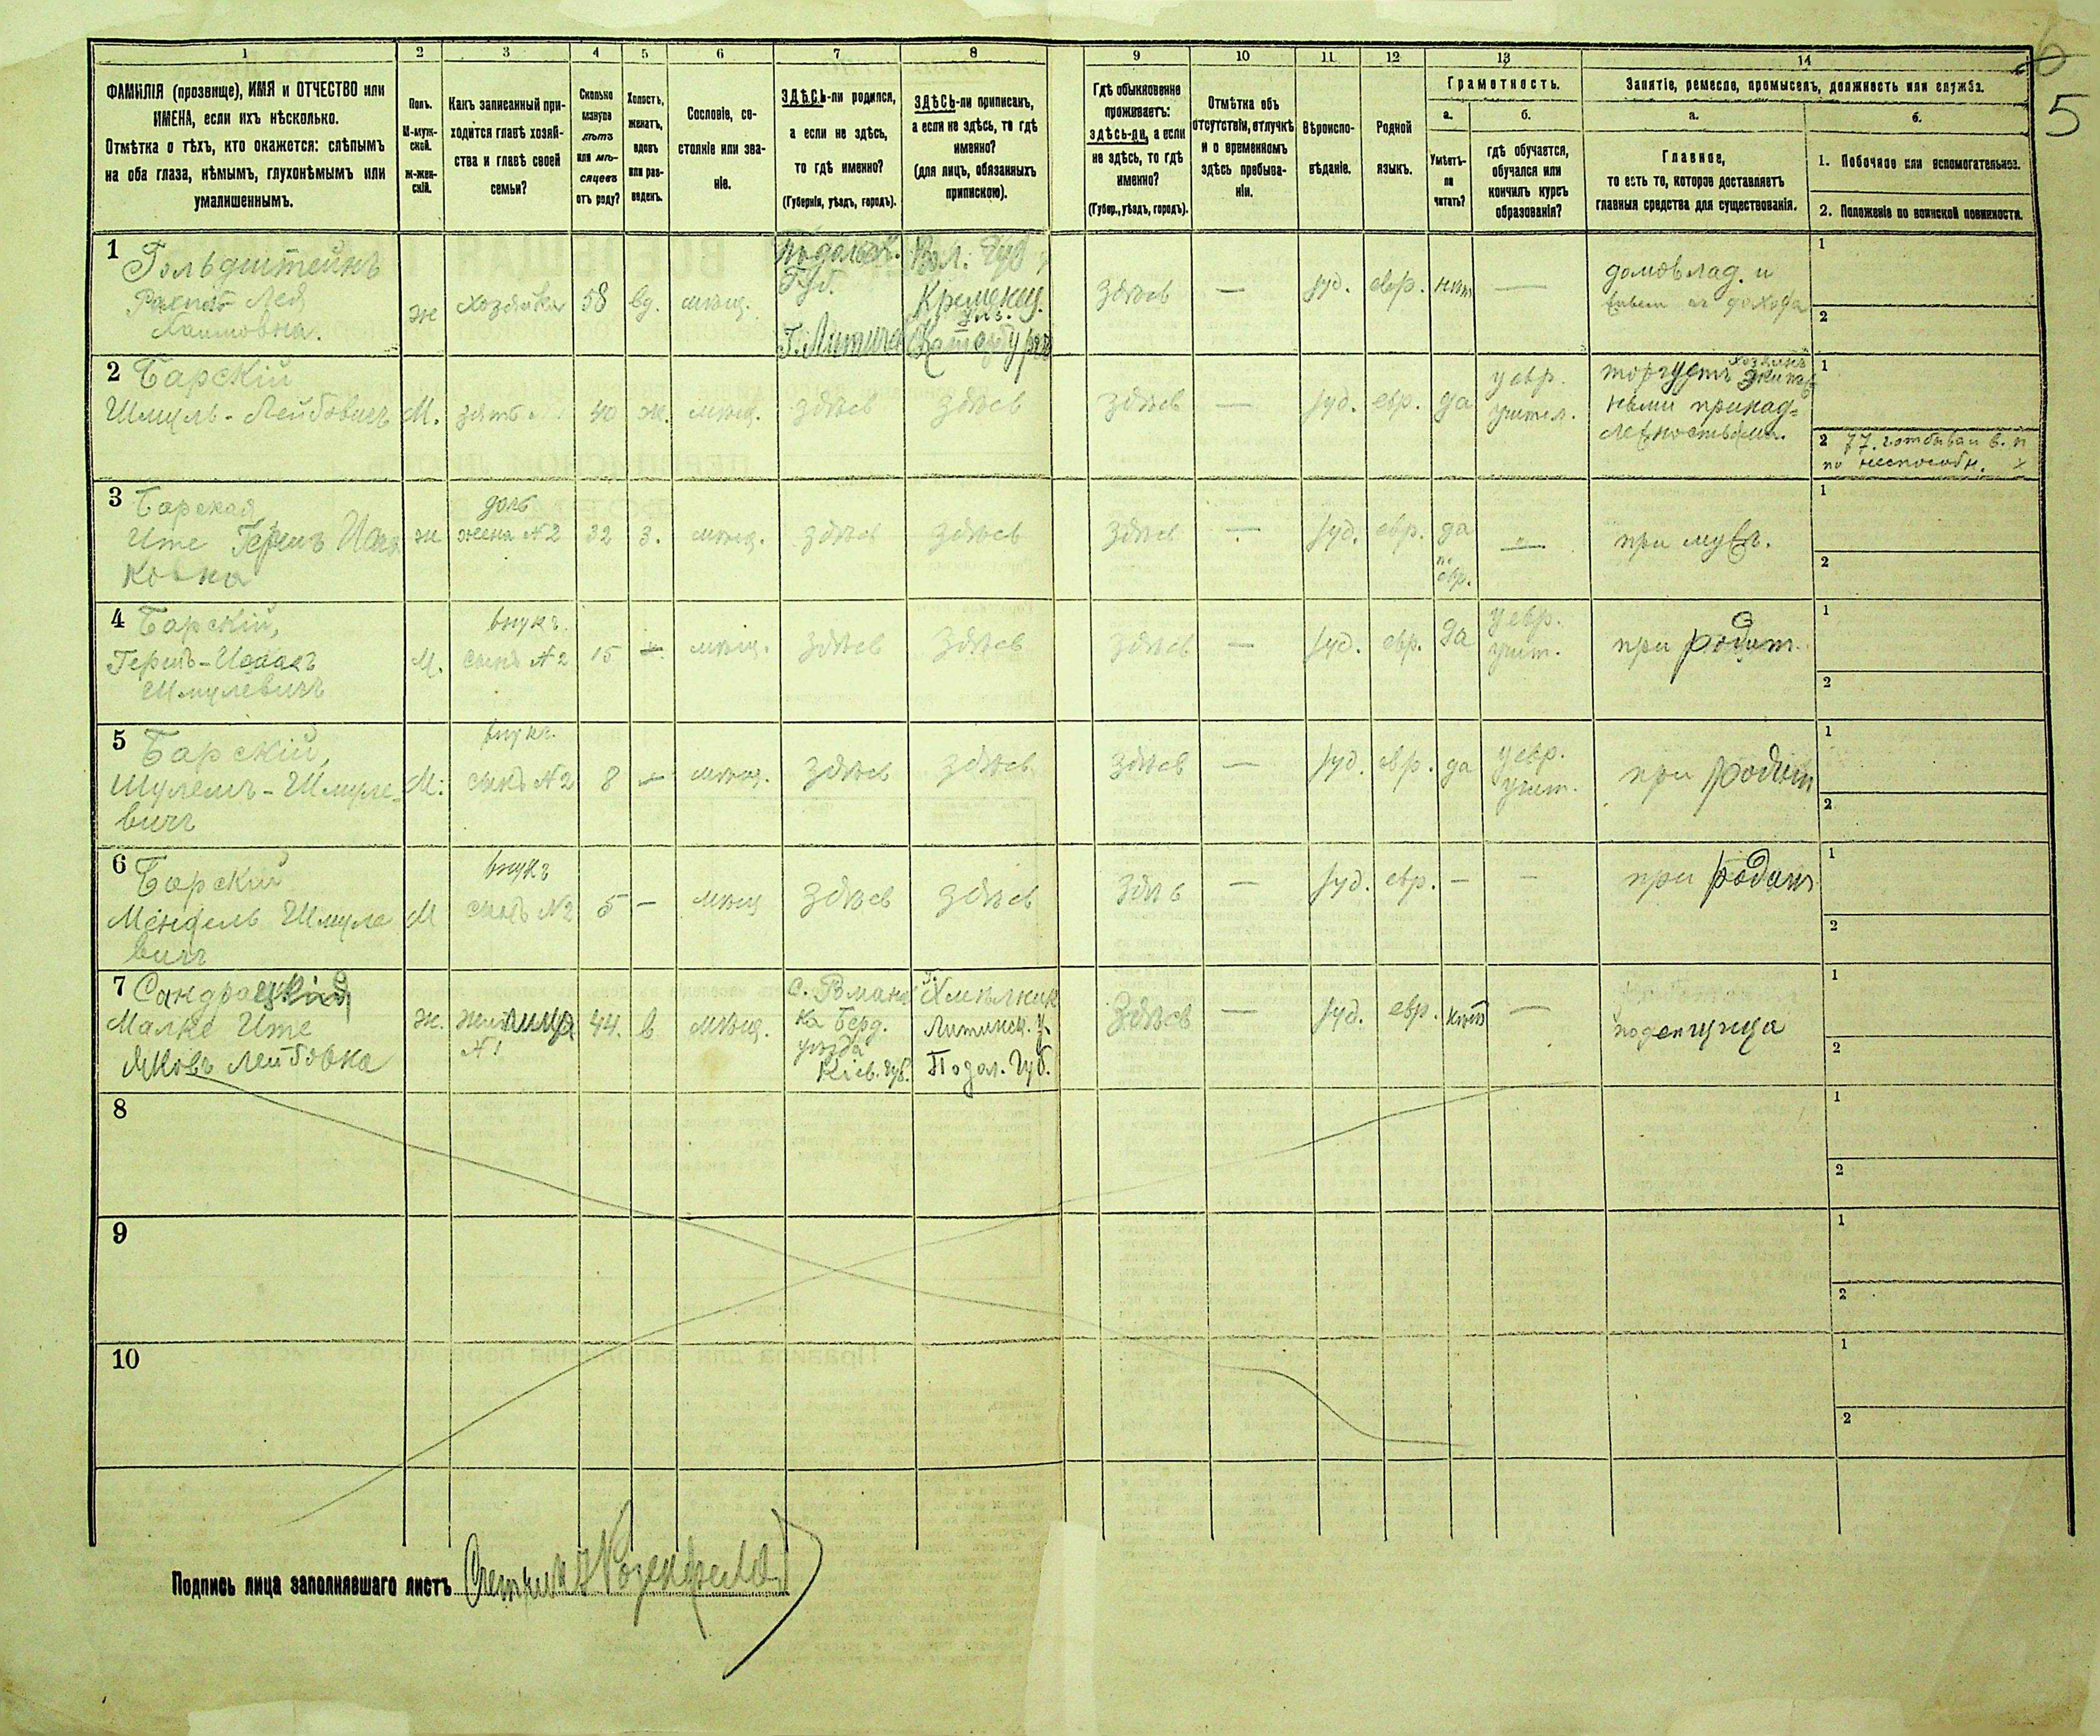 6
5
1 2 3 4 5 6 7 8 9 10 11 12 13 14
ФАМИЛІЯ (прозвище), ИМЯ и ОТЧЕСТВО или
ИМЕНА, если ихъ нѣсколько.
Отмѣтка о тѣхъ, кто окажется: слѣпымъ
на оба глаза, нѣмымъ, глухонѣмымъ или
умалишеннымъ.
Полъ.
М-муж-
ской.
ж-жен-
скій.
Какъ записанный при-
ходится главѣ хозяй-
ства и главѣ своей
семьи?
Сколько
минуло
лѣтъ
или мѣ-
сяцевъ
отъ роду?
Холостъ,
женатъ,
вдовъ
или раз-
веденъ.
Сословіе, со-
стояніе или зва-
ніе.
ЗДѢСЬ-ли родился,
а если не здѣсь,
то гдѣ именно?
(Губернія, уѣздъ, городъ).
ЗДѢСЬ-ли приписанъ,
а если не здѣсь, то гдѣ
именно?
(для лицъ, обязанныхъ
припискою).
Гдѣ обыкновенно
проживаетъ:
здѣсь-ли, а если
не здѣсь, то гдѣ
именно?
(Губер., уѣздъ, городъ).
Отмѣтка объ
отсутствіи, отлучкѣ
и о временномъ
здѣсь пребыва-
ніи.
Вѣроиспо-
вѣданіе.
Родной
языкъ.
Грамотность.
а.
Умѣетъ-
ли
читать?
б.
гдѣ обучается,
обучался или
кончилъ курсъ
образованія?
Занятіе, ремесло, промыселъ, должность или служба.
а.
Главное,
то есть то, которое доставляетъ
главныя средства для существованія.
б.
1. Побочное или вспомогательное.
2. Положеніе по воинской повинности.
1
Гольдштейнъ
Лея
ж
хозяйка
58
вд.
мѣщ.
Подольск.
Губ.
Г. Литинъ
Вол. Губ
Кременец.
у.
Катербургъ
здѣсь
—
Іуд.
евр.
нѣтъ
—
домовлад. и
1
2
2
Барскій
Шмуль-Лейбовичъ
М.
зять
40
ж.
мѣщ.
здѣсь
здѣсь
здѣсь
—
Іуд.
евр.
да
у евр.
учител.
торгуетъ
ными принад-
лежностями.
1
2 77. г. отбывал в. п
по неспособн.
3
Барская
Ите Герш
ковна
ж
дочь
жена №2
32
з.
мѣщ.
здѣсь
здѣсь
здѣсь
—
Іуд.
евр.
да
по
евр.
—
при муж.
1
2
4
Барскій,
Гершъ-Ицхакъ
Шмулевичъ
М.
внукъ.
сынъ №2
15
—
мѣщ.
здѣсь
здѣсь
здѣсь
—
Іуд.
евр.
да
у евр.
учит.
при родит.
1
2
5
Барскій,
Шулемъ-Шмуле-
вичъ
М.
внукъ.
сынъ №2
8
—
мѣщ.
здѣсь
здѣсь
здѣсь
—
Іуд.
евр.
да
у евр.
учит.
при родит
1
2
6
Барскій
Мендель Шмуле
вичъ
М
внукъ
сынъ №2
5
—
мѣщ
здѣсь
здѣсь
здѣсь
—
Іуд.
евр.
—
—
при родит
1
2
7
Малке Ите
Яковъ Лейбовна
ж.
жилица
№1
44.
в
мѣщ.
с. Рмано
ка Берд.
уѣзда
Кіев. губ.
г. Хмѣлник
Литинск. у.
Подол. Губ.
Здѣсь
—
Іуд.
евр.
нѣтъ
—
поденщица
1
2
8
1
2
9
1
2
10
1
2
Подпись лица заполнявшаго листъ